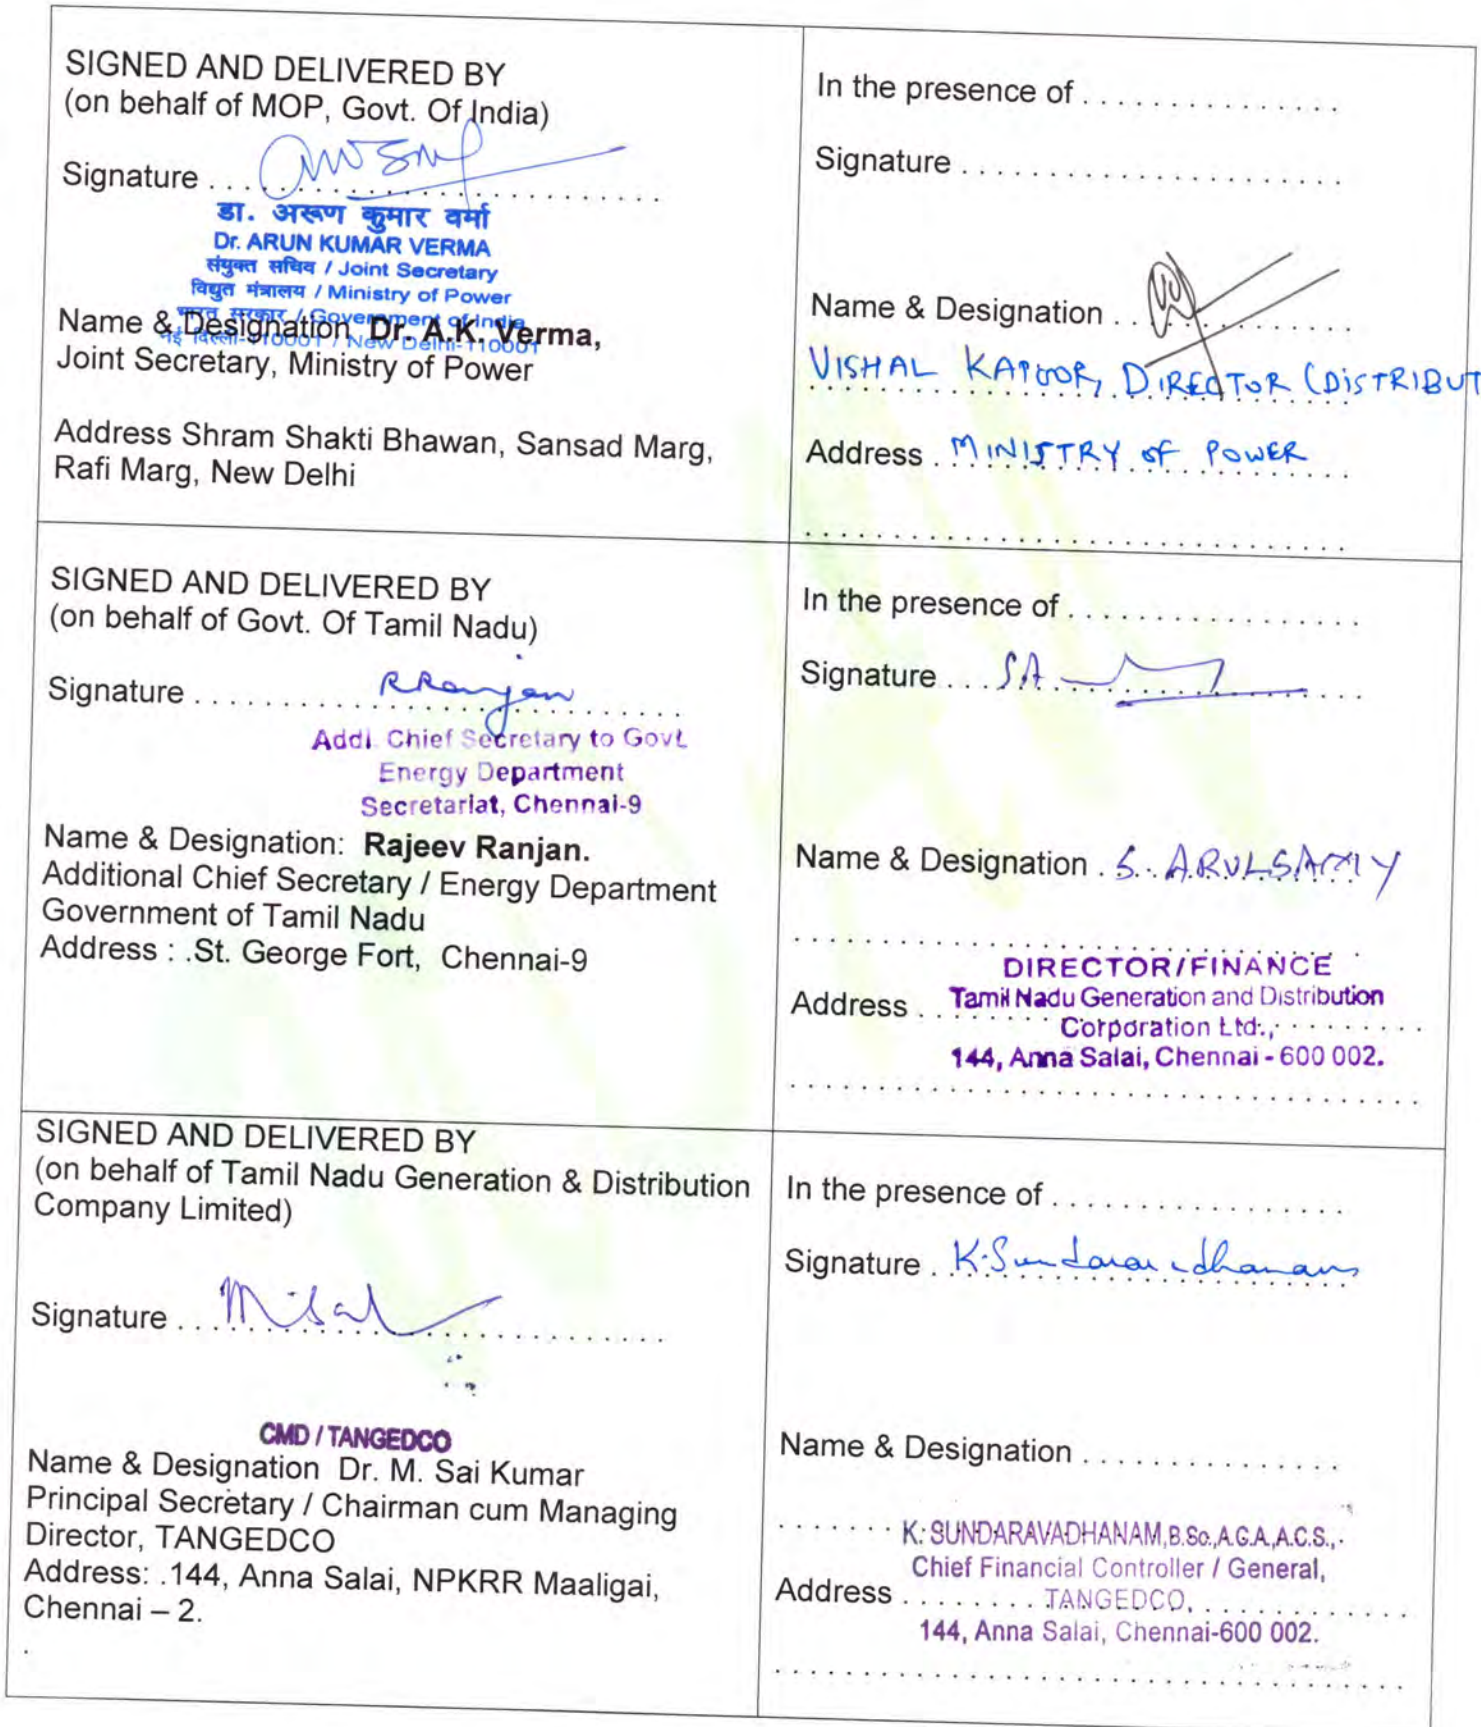 SIGNED AND DELIVERED BY
(on behalf of MOP, Govt. Of India)
Signature . . . . . . . . . . . . . . . . . . . . . . . . . .
डा. अरूण कुमार वर्मा
Dr. ARUN KUMAR VERMA
संयुक्त सचिव / Joint Secretary
विद्युत मंत्रालय / Ministry of Power
भारत सरकार / Government of India
नई दिल्ली-110001 / New Delhi-110001
Name & Designation Dr. A.K. Verma,
Joint Secretary, Ministry of Power
Address Shram Shakti Bhawan, Sansad Marg,
Rafi Marg, New Delhi
In the presence of . . . . . . . . . . . . . . .
Signature . . . . . . . . . . . . . . . . . . . . .
Name & Designation . . . . . . . . . . . . .
VISHAL KAPOOR, DIRECTOR (DISTRIBUT
Address . MINISTRY OF POWER
SIGNED AND DELIVERED BY
(on behalf of Govt. Of Tamil Nadu)
Signature . . . RRanjan
Addl. Chief Secretary to Govt.
Energy Department
Secretariat, Chennai-9
Name & Designation: Rajeev Ranjan.
Additional Chief Secretary / Energy Department
Government of Tamil Nadu
Address : .St. George Fort, Chennai-9
In the presence of . . . . . . . . . . . . . . . .
Signature . . . SA
Name & Designation . S. ARULSAMY
DIRECTOR/FINANCE
Address . . Tamil Nadu Generation and Distribution
Corporation Ltd.,
144, Anna Salai, Chennai - 600 002.
SIGNED AND DELIVERED BY
(on behalf of Tamil Nadu Generation & Distribution
Company Limited)
Signature . . .
CMD / TANGEDCO
Name & Designation Dr. M. Sai Kumar
Principal Secretary / Chairman cum Managing
Director, TANGEDCO
Address: .144, Anna Salai, NPKRR Maaligai,
Chennai – 2.
.
In the presence of . . . . . . . . . . . . . . . .
Signature . K. Sundaravadhanam
Name & Designation . . . . . . . . . . . . . .
K. SUNDARAVADHANAM, B.Sc., A.G.A., A.C.S.,
Chief Financial Controller / General,
Address . . . . . . . . TANGEDCO,
144, Anna Salai, Chennai-600 002.